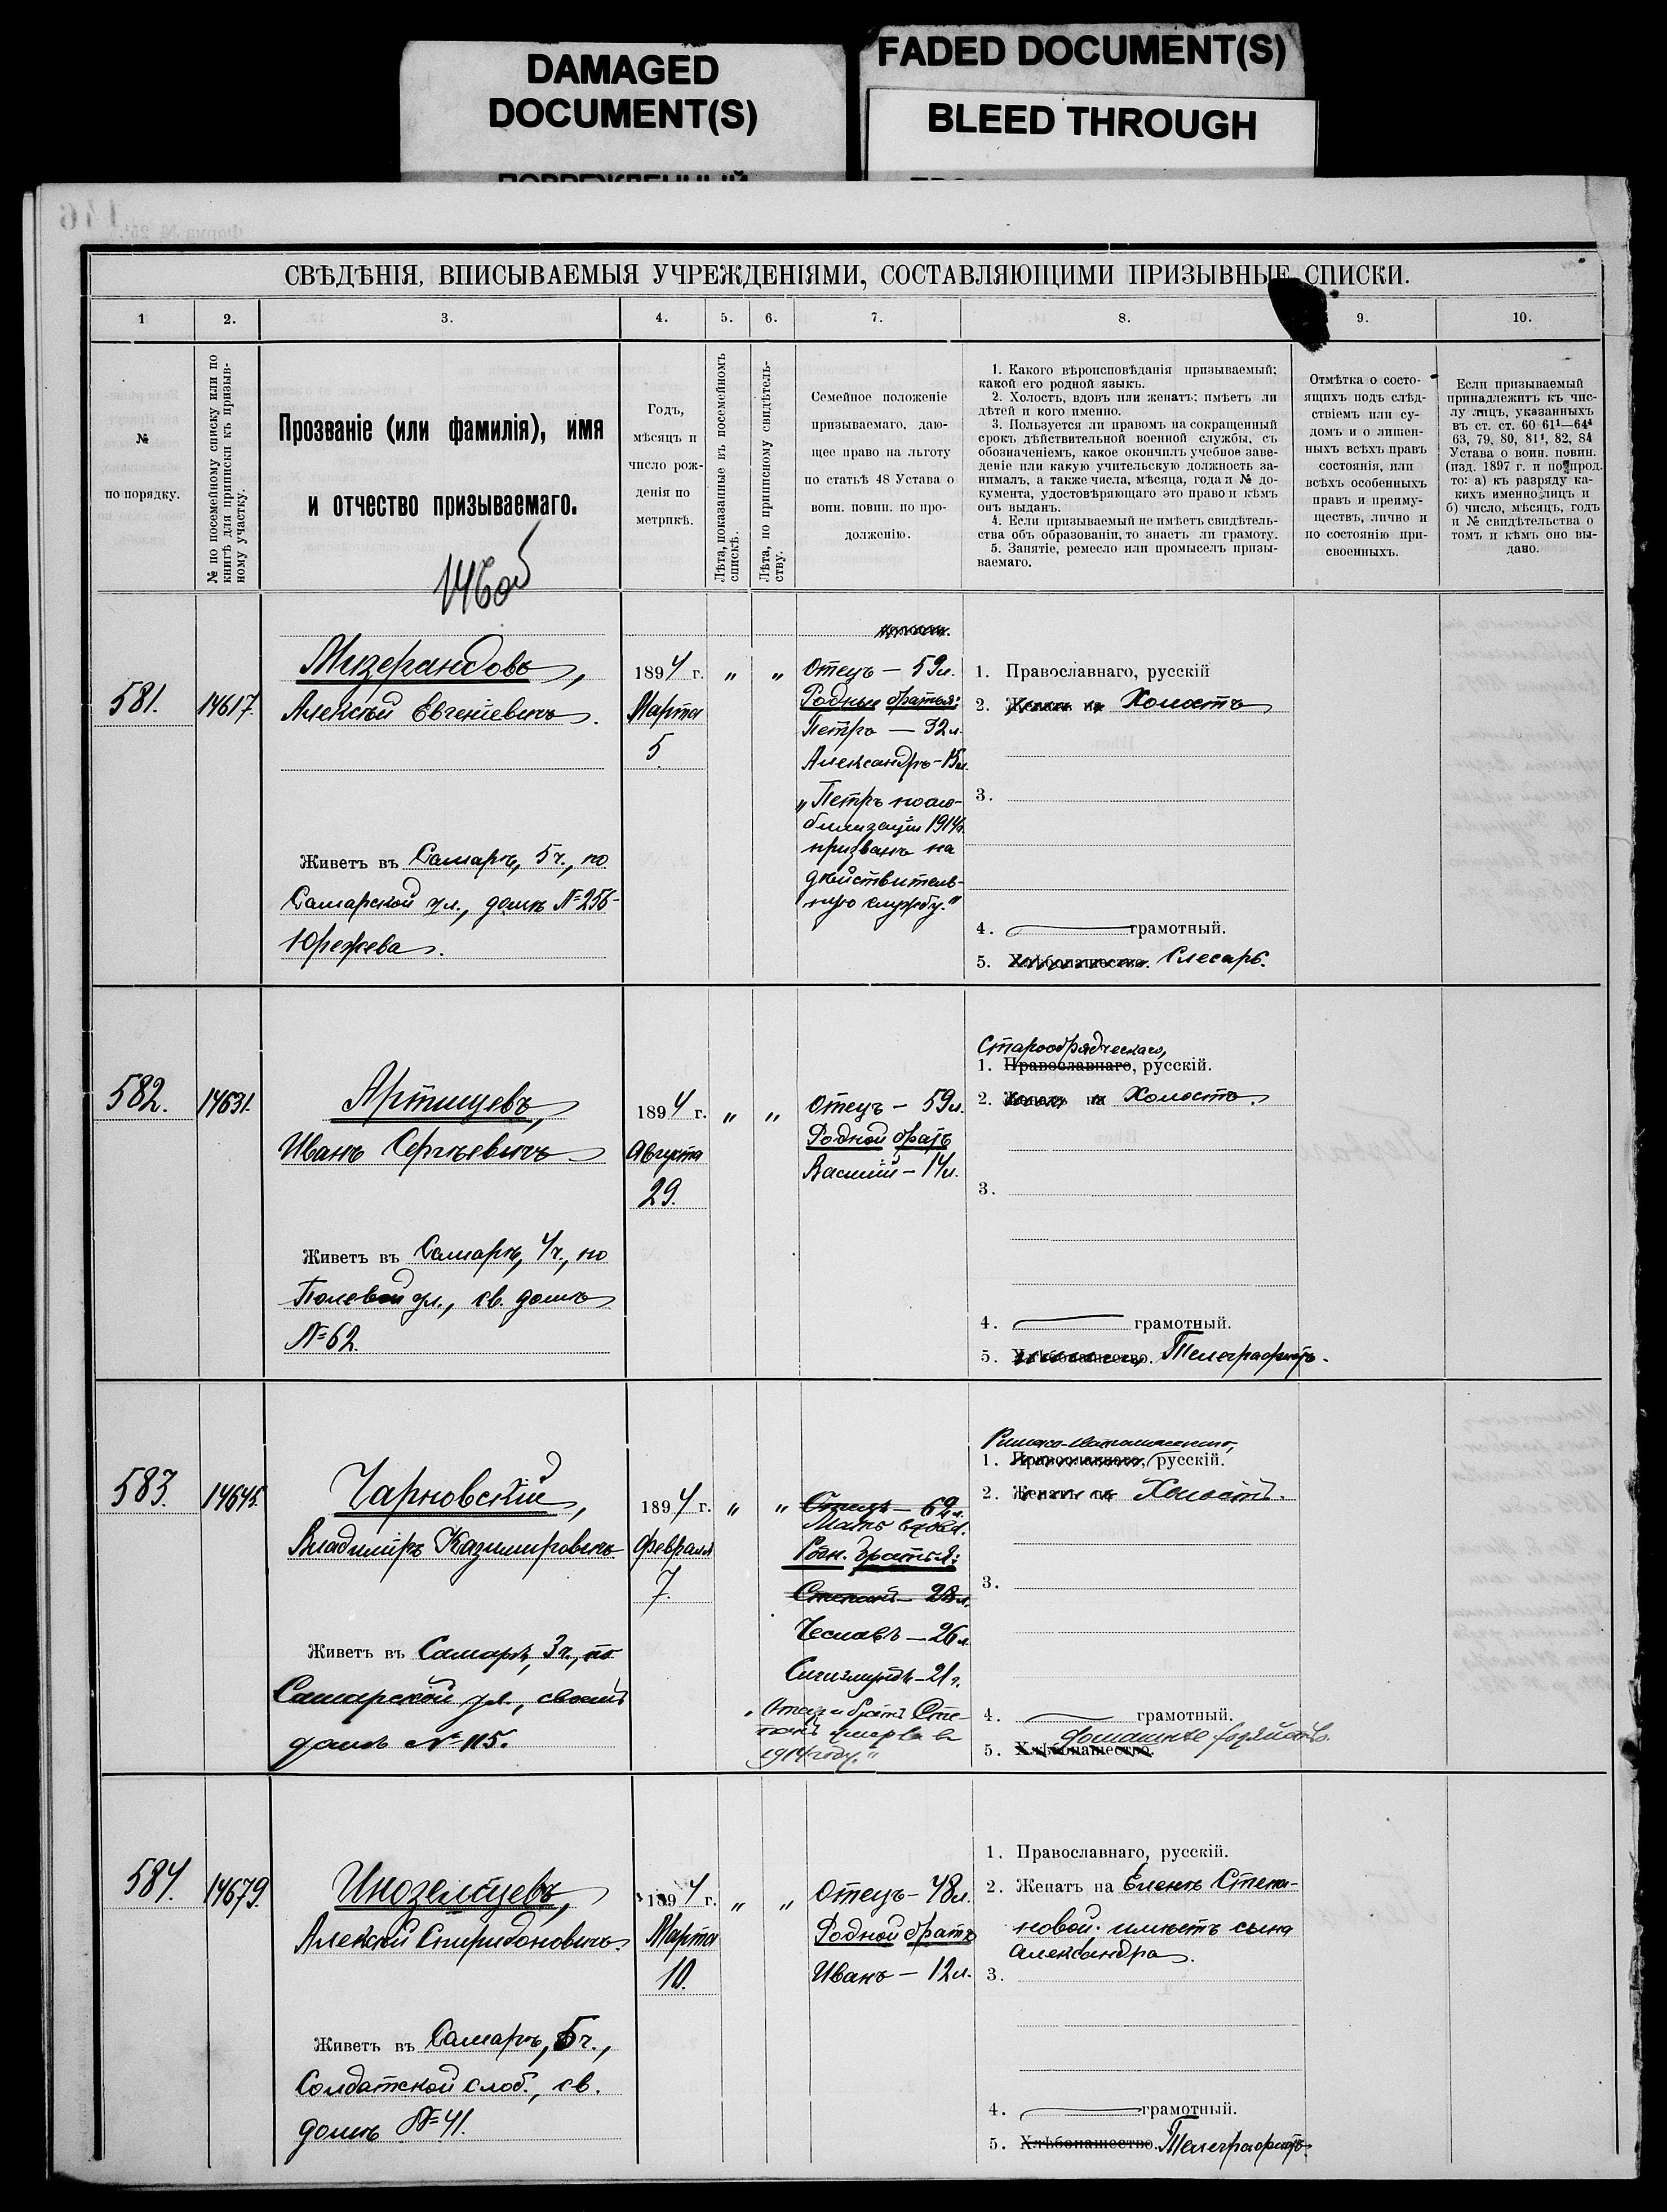 DAMAGED
DOCUMENT(S)
FADED DOCUMENT(S)
BLEED THROUGH
ПОВРЕЖДЕННЫЙ
146
Форма № 25
СВѢДѢНІЯ, ВПИСЫВАЕМЫЯ УЧРЕЖДЕНІЯМИ, СОСТАВЛЯЮЩИМИ ПРИЗЫВНЫЕ СПИСКИ.
1 2. 3. 4. 5. 6. 7. 8. 9. 10.
№
по порядку.
№ по посемейному списку или по
книгѣ для приписки къ призыв-
ному участку.
Прозваніе (или фамилія), имя
и отчество призываемаго.
146об
Годъ,
мѣсяцъ и
число рож-
денія по
метрикѣ.
Лѣта, показанные въ посемейномъ
спискѣ.
Лѣта, по приписному свидѣтель-
ству.
Семейное положеніе
призываемаго, даю-
щее право на льготу
по статьѣ 48 Устава о
воин. повин. по про-
долженію.
1. Какого вѣроисповѣданія призываемый;
какой его родной языкъ.
2. Холостъ, вдовъ или женатъ; имѣетъ ли
дѣтей и кого именно.
3. Пользуется ли правомъ на сокращенный
срокъ дѣйствительной военной службы, съ
обозначеніемъ, какое окончилъ учебное заве-
деніе или какую учительскую должность за-
нималъ, а также числа, мѣсяца, года и № до-
кумента, удостовѣряющаго это право и кѣмъ
онъ выданъ.
4. Если призываемый не имѣетъ свидѣтель-
ства объ образованіи, то знаетъ ли грамоту.
5. Занятіе, ремесло или промыселъ призы-
ваемаго.
Отмѣтка о состо-
ящихъ подъ слѣд-
ствіемъ или су-
домъ и о лишен-
ныхъ всѣхъ правъ
состоянія, или
всѣхъ особенныхъ
правъ и преиму-
ществъ, лично и
по состоянію при-
своенныхъ.
Если призываемый
принадлежитъ къ чис-
лу лицъ, указанныхъ
въ ст. ст. 60 61¹—64⁴
63, 79, 80, 81¹, 82, 84
Устава о воин. повин.
(изд. 1897 г. и по прод.
то: а) къ разряду ка-
кихъ именно лицъ и
б) число, мѣсяцъ, годъ
и № свидѣтельства о
томъ и кѣмъ оно вы-
дано.
581.
14617.
Мизерандовъ,
Алексѣй Евгеніевичъ.
Живетъ въ Самарѣ, 5ч., по
Самарской ул., домъ №256
Юрежева.
1894 г.
Марта
5
" "
Отецъ — 59л.
Родные братья:
Петръ — 32 л.
Александръ – 15л.
„Петръ по мо-
билизаціи 1914г.
призванъ на
дѣйствитель-
ную службу."
1. Православнаго, русскій
2. Женатъ на Холостъ
3.
4. грамотный.
5. Хлѣбопашество. Слесарь.
582.
14631.
Артищевъ,
Иванъ Сергѣевичъ
Живетъ въ Самарѣ, 4ч., по
Полевой ул., св. домъ
№62.
1894 г.
Августа
29.
" "
Отецъ – 59л.
Родной братъ
Василій – 14л.
Старообрядческаго,
1. Православнаго, русскій.
2. Женатъ на Холостъ.
3.
4. грамотный.
5. Хлѣбопашество. Телеграфистъ.
583.
14645.
Чарновскій,
Владиміръ Казимировичъ
Живетъ въ Самарѣ, 3ч., по
Самарской ул., своемъ
домѣ № 115.
1894 г.
Февраля
7.
" "
Отецъ – 62л.
Мать вдова.
Родн. братья:
Степанъ – 28л.
Чеславъ – 26 л.
Сигизмундъ – 21 г.
„Отецъ и братъ Сте-
панъ умерли въ
1914 году."
Римско-католическаго,
1. Православнаго, русскій.
2. Женатъ на Холостъ.
3.
4. грамотный.
домашнее хозяйство.
5. Хлѣбопашество.
584.
14679.
Иноземцевъ,
Алексѣй Спиридоновичъ.
Живетъ въ Самарѣ, 5ч.,
Солдатской слоб., св.
домъ №41.
1894 г.
Марта
10.
" "
Отецъ – 48л.
Родной братъ
Иванъ – 12л.
1. Православнаго, русскій.
2. Женатъ на Еленѣ Степа-
новой. имѣетъ сына
Александра.
3.
4. грамотный.
5. Хлѣбопашество. Телеграфистъ.